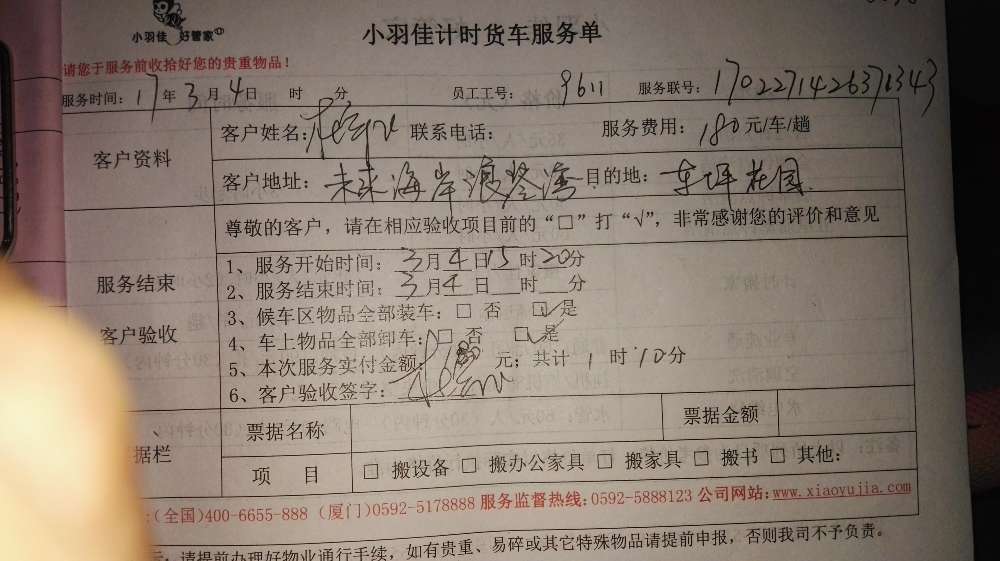 小羽佳 好管家
小羽佳计时货车服务单
请您于服务前收拾好您的贵重物品！
服务时间：17年3月4日 时 分 员工工号：9611 服务联号：1702271426371343
客户资料
客户姓名： 联系电话： 服务费用：180元/车/趟
客户地址：未来海岸浪琴湾 目的地：东坪花园
服务结束
客户验收
尊敬的客户，请在相应验收项目前的“□”打“√”，非常感谢您的评价和意见
1、服务开始时间：3月4日15时20分
2、服务结束时间：3月4日 时 分
3、候车区物品全部装车：□ 否 ☑ 是
4、车上物品全部卸车：□ 否 ☑ 是
5、本次服务实付金额 元；共计 1 时 10 分
6、客户验收签字：
据栏
票据名称 票据金额
项 目 □ 搬设备 □ 搬办公家具 □ 搬家具 □ 搬书 □ 其他：
:(全国)400-6655-888 (厦门)0592-5178888 服务监督热线:0592-5888123 公司网站:www.xiaoyujia.com
示：请提前办理好物业通行手续，如有贵重、易碎或其它特殊物品请提前申报，否则我司不予负责。